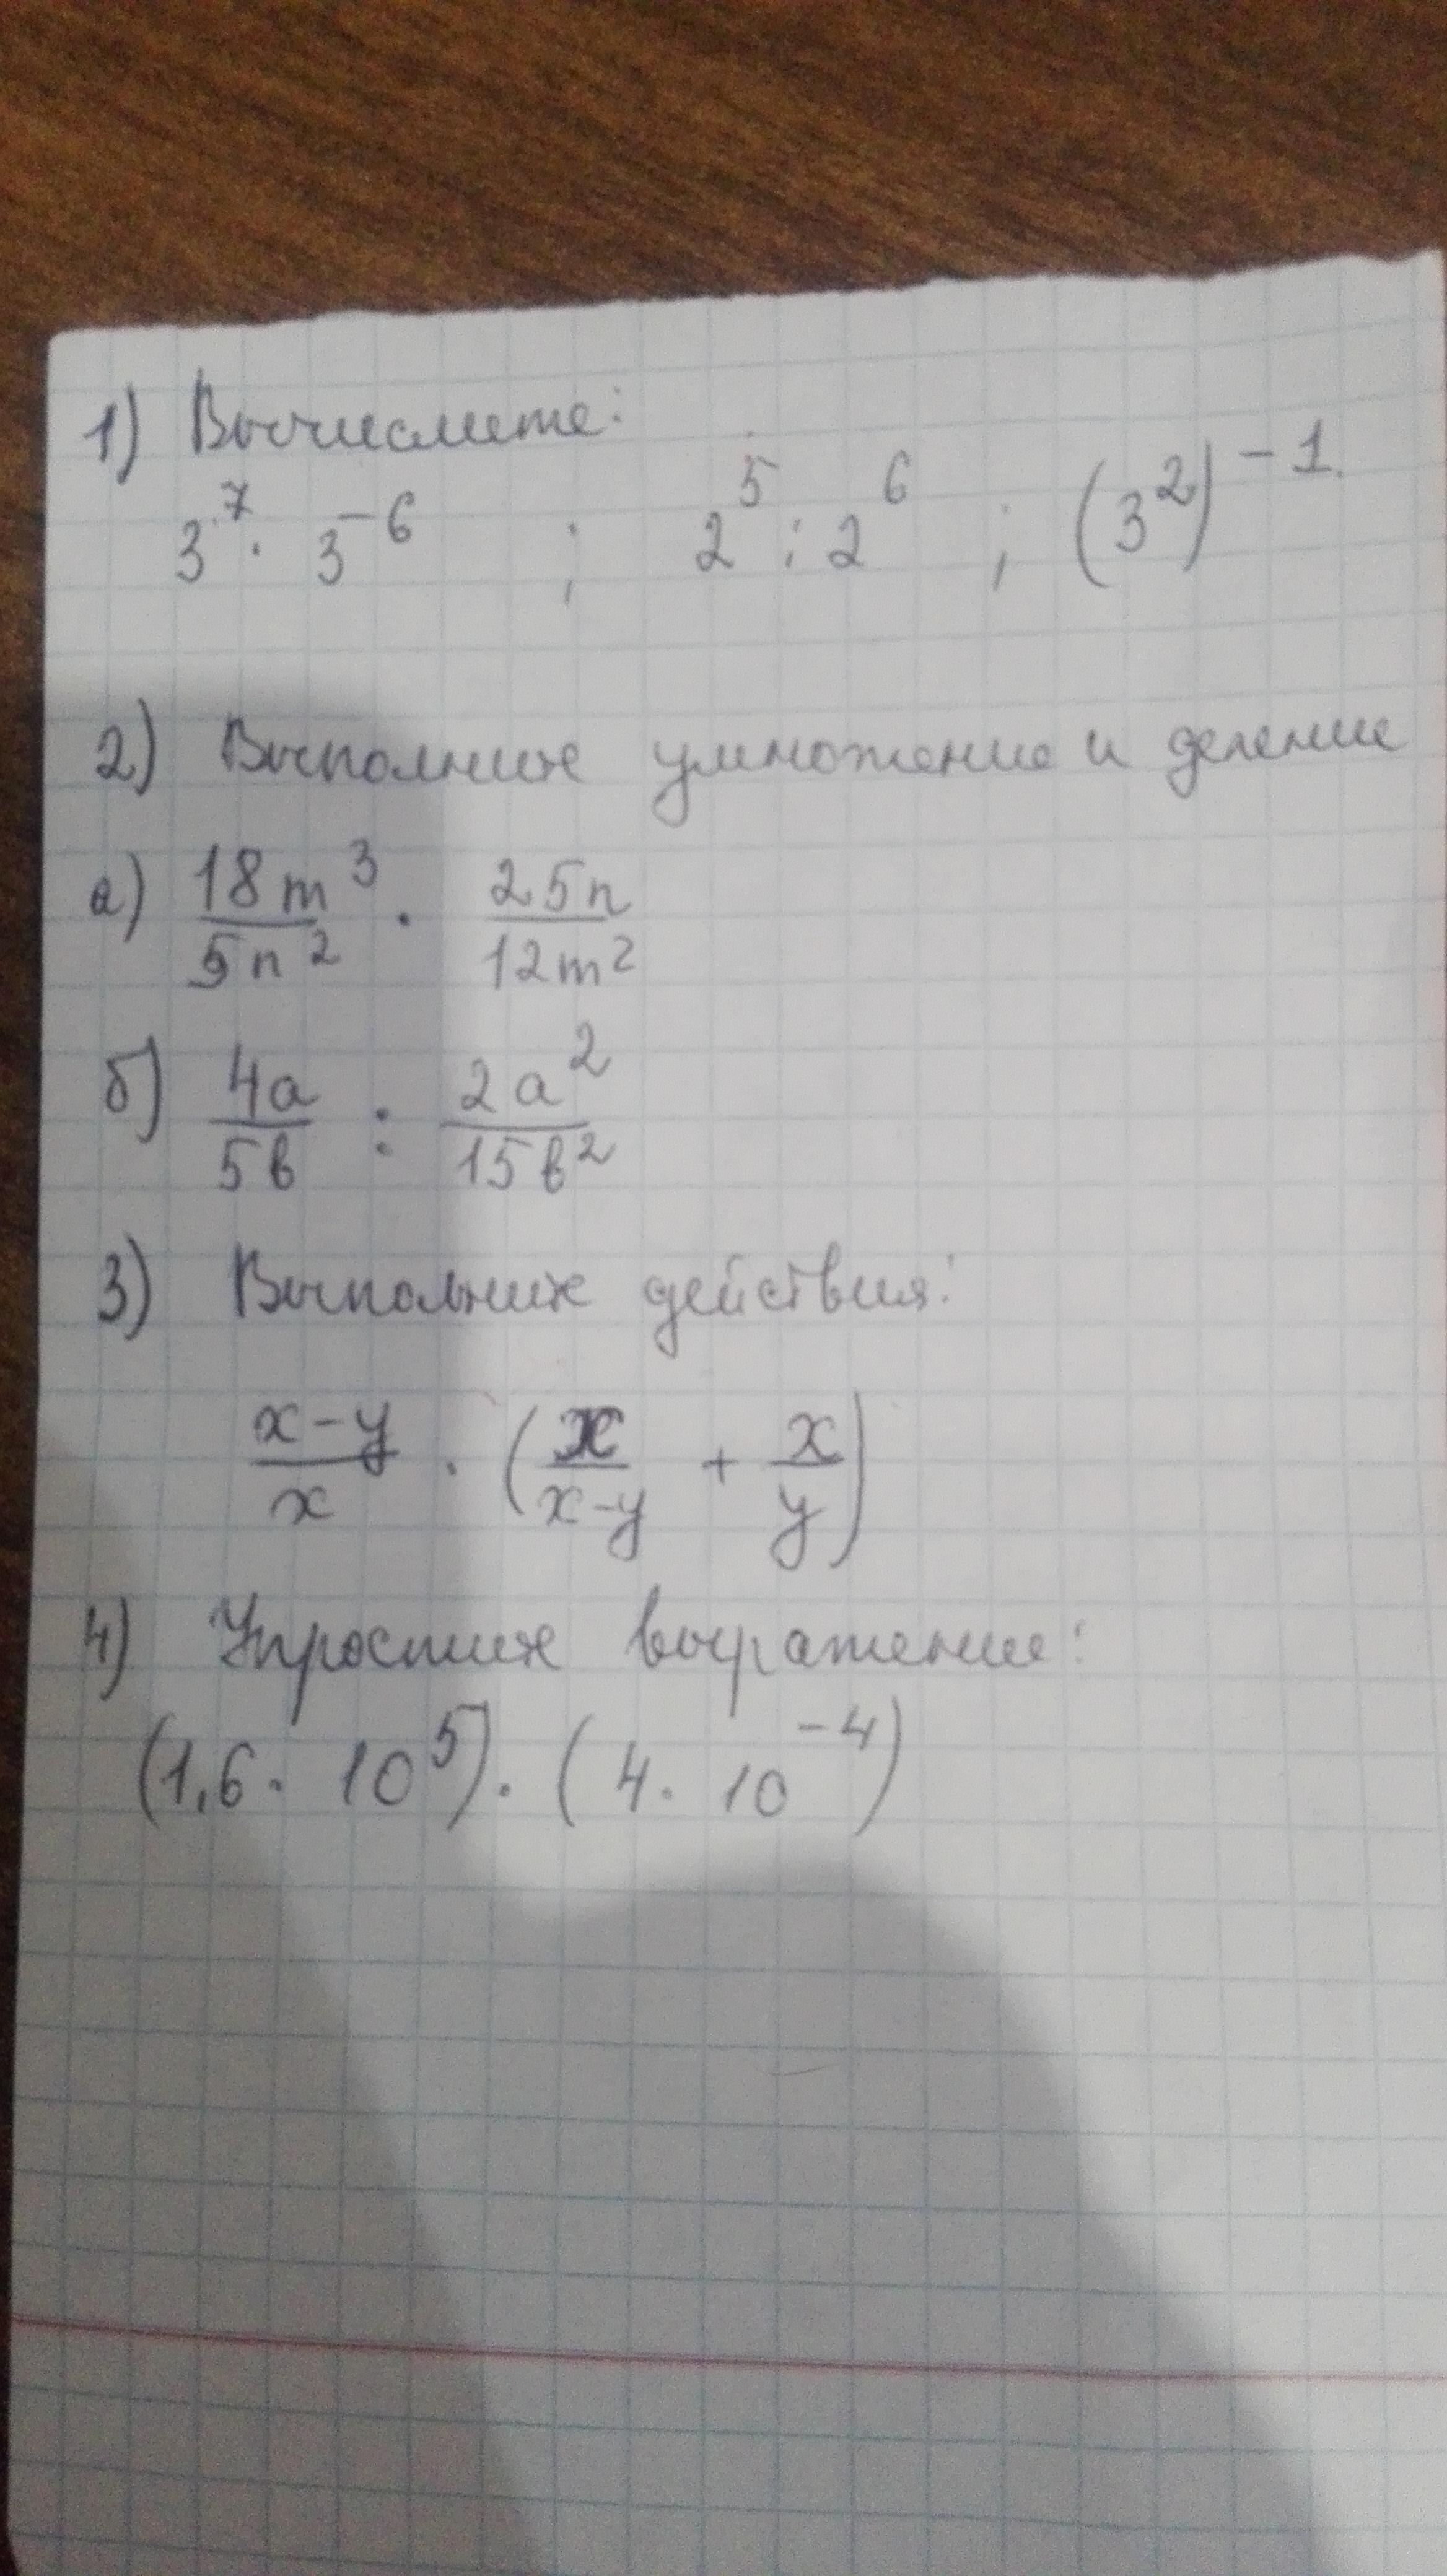 1) Вычислите:
3⁷ · 3⁻⁶ ; 2⁵ : 2⁶ ; (3²)⁻¹.
2) Выполните умножение и деление
а) 18m³/5n² · 25n/12m²
б) 4a/5b : 2a²/15b²
3) Выполните действия:
(x-y)/x · (x/(x-y) + x/y)
4) Упростите выражение:
(1,6 · 10⁵) · (4 · 10⁻⁴)